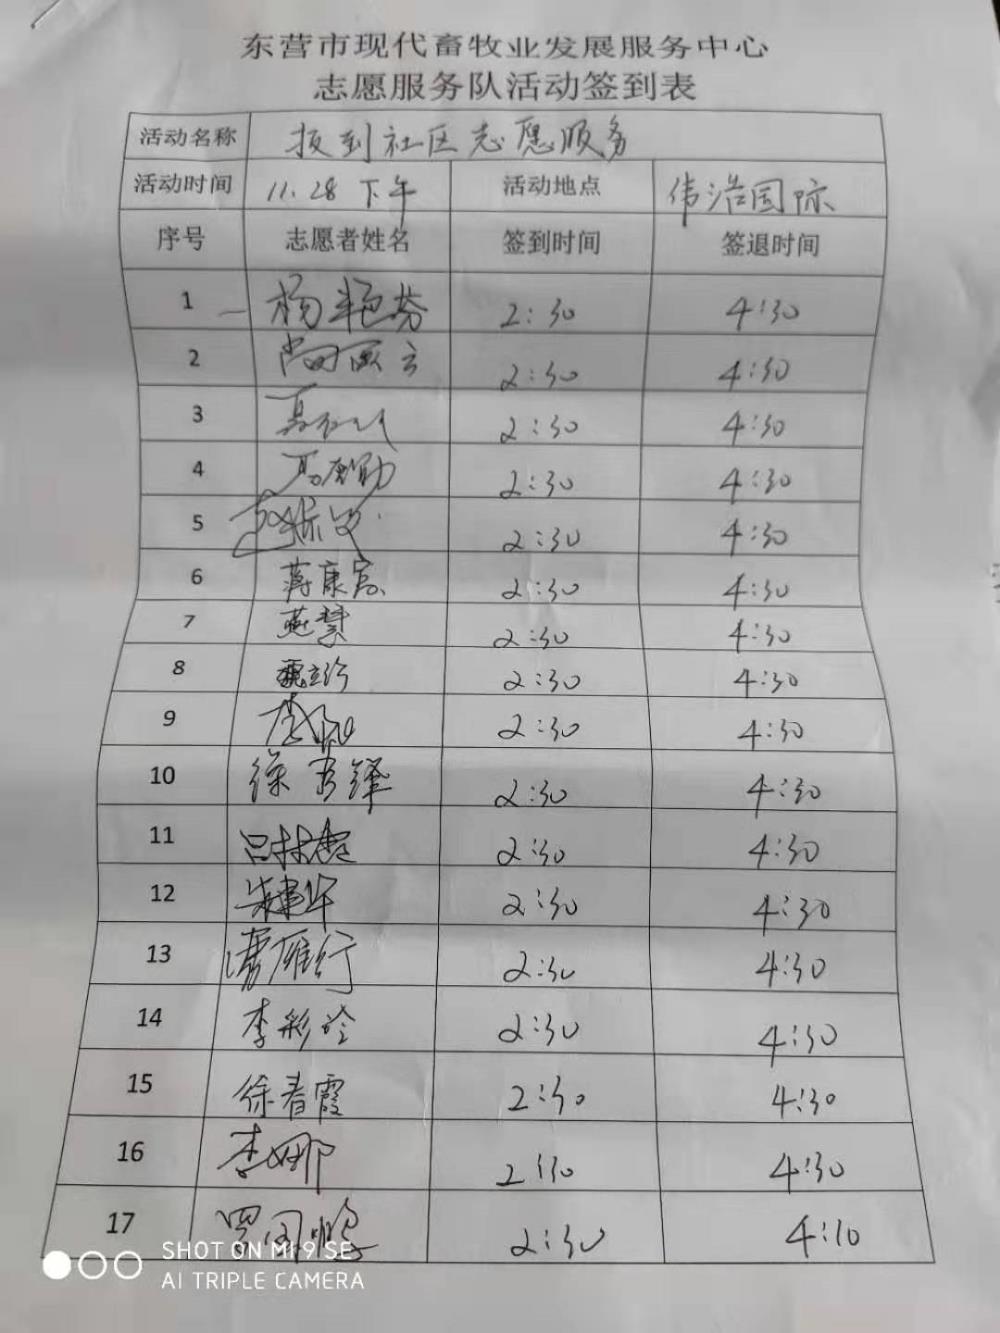 东营市现代畜牧业发展服务中心
志愿服务队活动签到表
活动名称 报到社区志愿服务
活动时间 11.28 下午 活动地点 伟浩国际
序号 志愿者姓名 签到时间 签退时间
1 杨艳芬 2:30 4:30
2 2:30 4:30
3 2:30 4:30
4 2:30 4:30
5 2:30 4:30
6 蒋康富 2:30 4:30
7 燕慧 2:30 4:30
8 魏立珍 2:30 4:30
9 2:30 4:30
10 徐秀锋 2:30 4:30
11 吕林霞 2:30 4:30
12 朱建华 2:30 4:30
13 曹雁行 2:30 4:30
14 李彩玲 2:30 4:30
15 徐春霞 2:30 4:30
16 李娜 2:30 4:30
17 2:30 4:30
SHOT ON MI 9 SE
AI TRIPLE CAMERA